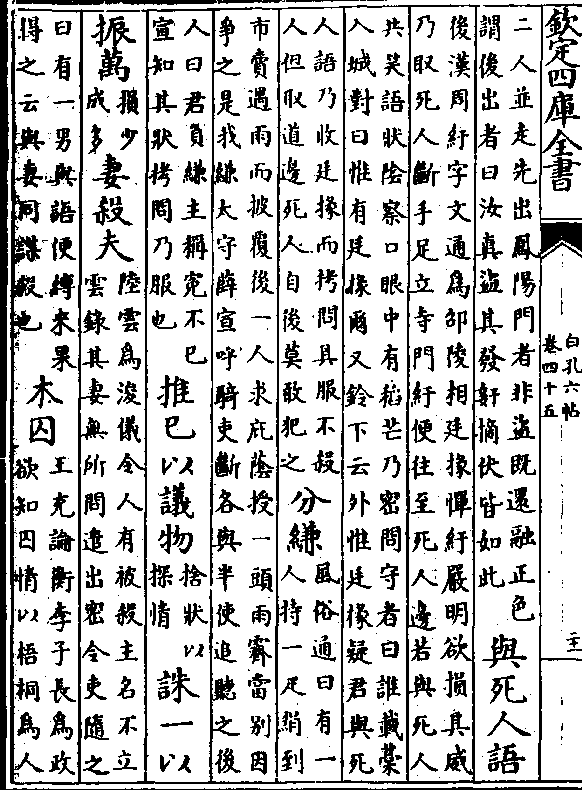 欽定四庫全書
白孔六帖
卷四十五
二十
二人並走先出鳳陽門者非盜既還融正色
謂後出者曰汝真盜其發奸摘伏皆如此
與死人語
後漢周紆字文通為邵陵相廷掾憚紆嚴明欲損其威
乃取死人斷手足立寺門紆便往至死人邊若與死人
共笑語狀陰察口眼中有稻芒乃密問守者曰誰載藁
入城對曰惟有廷掾爾又鈴下云外惟廷掾疑君與死
人語乃收廷掾而拷問具服不殺
人但取道邊死人自後莫敢犯之
分縑
風俗通曰有一
人持一疋縑到
市賣遇雨而披覆後一人求庇蔭授一頭雨霽當别因
爭之是我縑太守薛宣呼騎吏斷各與半使追聽之後
人曰君負縑主稱冤不已
宣知其狀拷問乃服也
推已以議物
捨狀以
探情
誅一以
振萬
損少
成多
妻殺夫
陸雲為浚儀令人有被殺主名不立
雲錄其妻無所問遣出密令吏隨之
曰有一男與語便縛來果
得之云與妻同謀殺也
木囚
王充論衡李子長為政
欲知囚情以梧桐為人